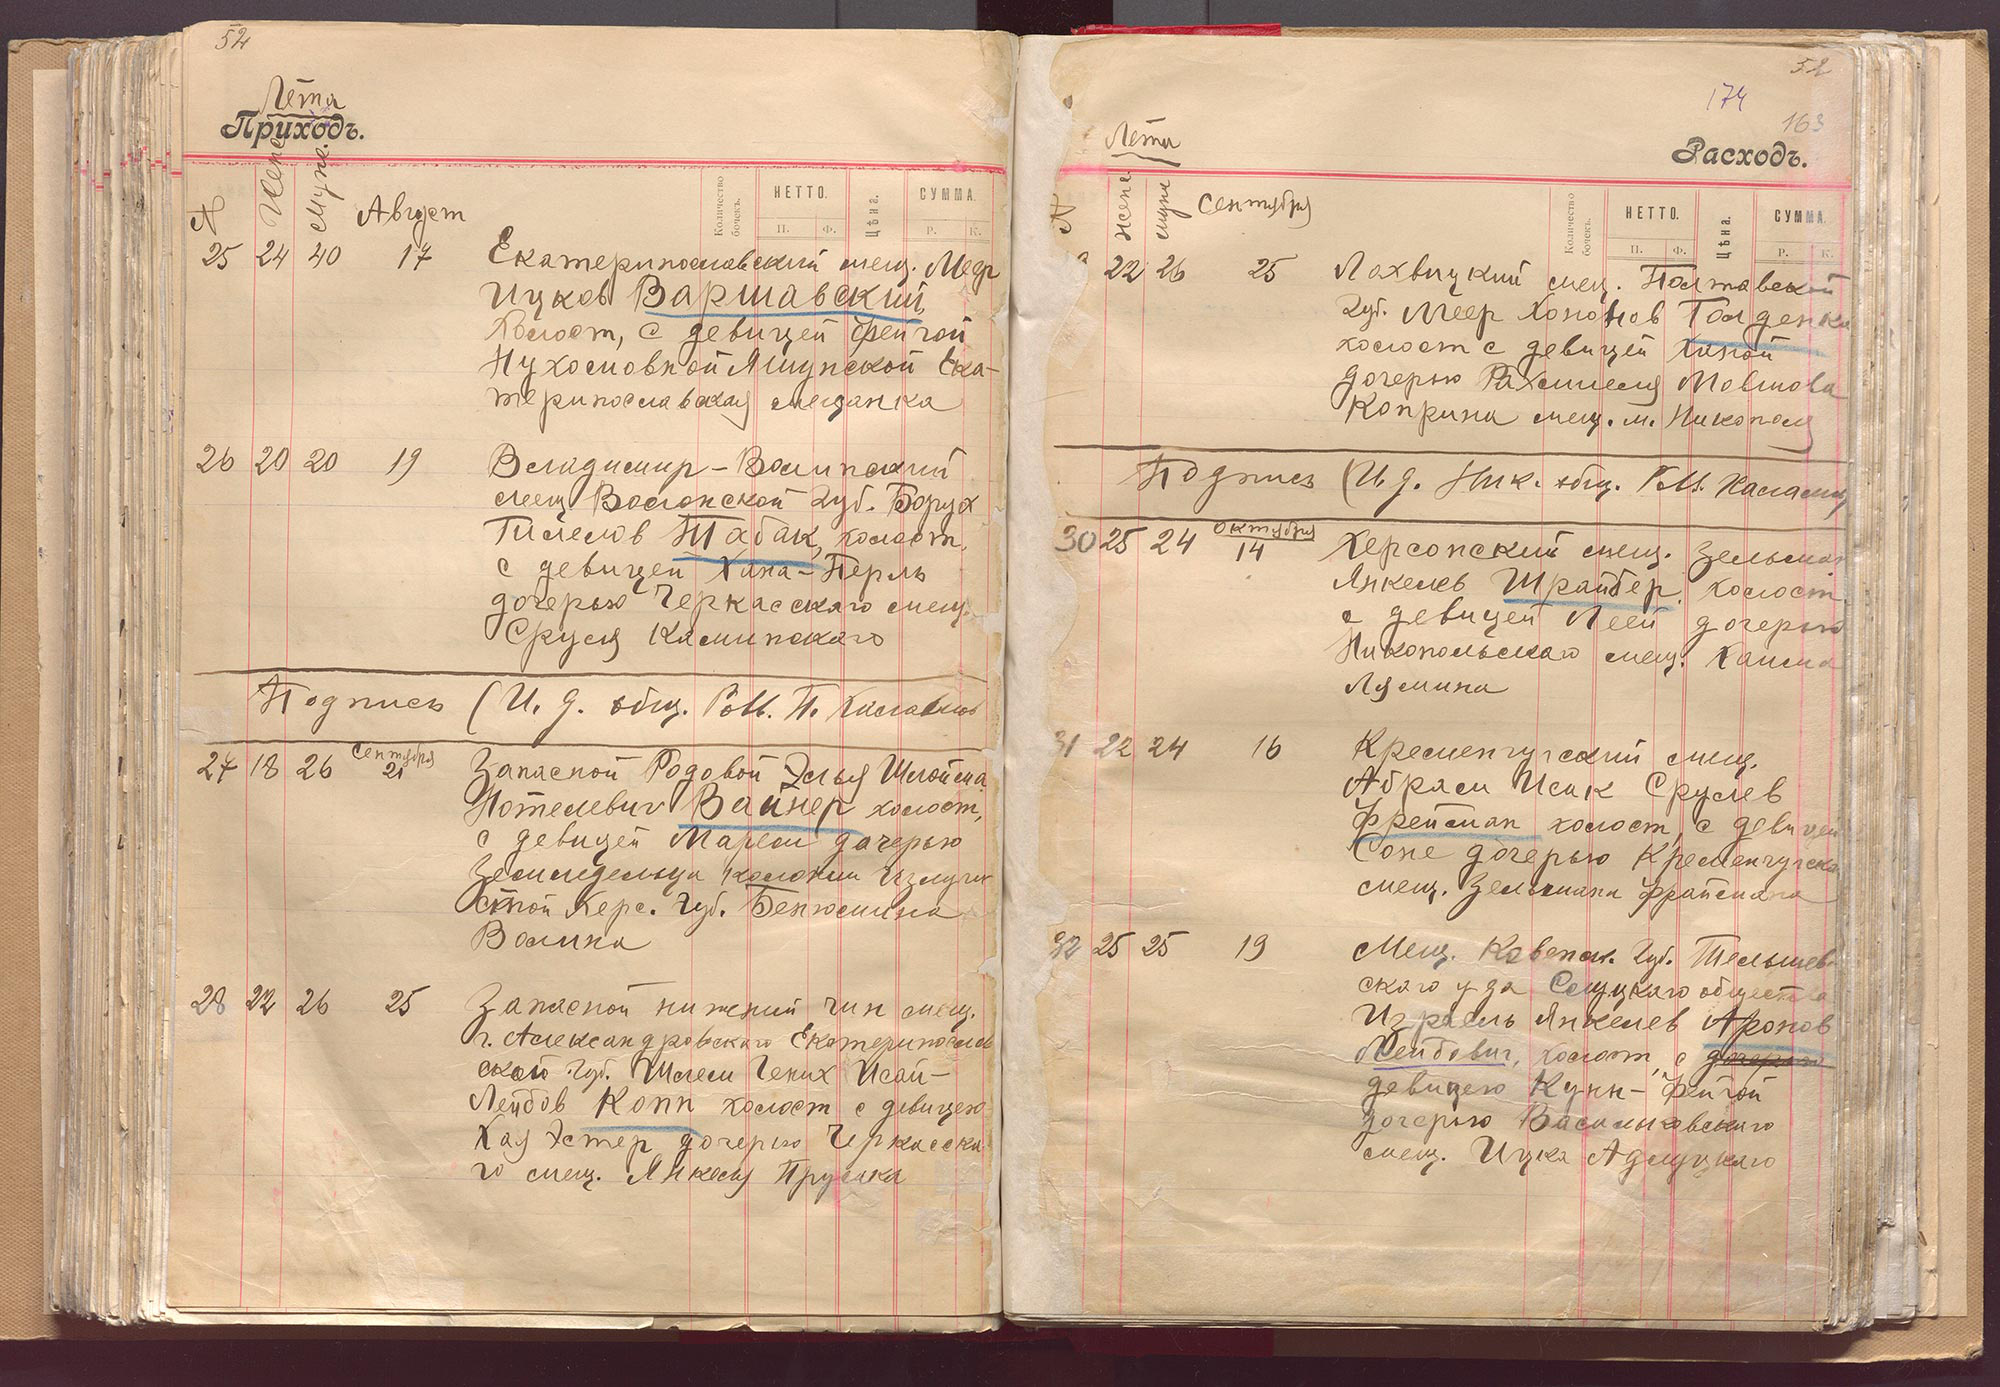 52
Лѣта
Приходъ.
N Женс Мужс. Август
Количество бочекъ. НЕТТО. П. Ф. Цѣна. СУММА. Р. К.
25 24 40 17 Екатеринославский мещ. Меер
Ицков Варшавский,
Холост, с девицей Фейгой
Нухомовной Яшунской Ека-
теринославская мещанка
26 20 20 19 Владимир-Волинский
мещ Волонской Губ. Борух
Тилелов Табак, холост,
с девицей Хана-Перль
дочерью Черкасскаго мещ.
Сруля Каминскаго
Подпись (И. д. общ. Рав. П.
27 18 26 Сентября 21 Запасной Родовой Элья Шлойма
Мотелевич Вайнер холост,
с девицей Марем дочерью
Земледельца колонии Излучи
стой Херс. Губ. Бенюмина
Волина
28 22 26 25 Запасной нижний чин мещ.
г. Александровскаго Екатеринослав
ской Губ. Шлем Гених Исай-
Лейбов Копп холост с девицею
Хая Эстер дочерью Черкасска
го мещ. Янкеля Пруska
52
174
163
Лѣта
Расходъ.
N Женс Мужс Сентября
Количество бочекъ. НЕТТО. П. Ф. Цѣна. СУММА. Р. К.
22 26 25 Лохвицкий мещ. Полтавской
Губ. Меер Хононов Голденка
холост с девицей Ханой
дочерью Рахмиеля Мовшова
Коприна мещ. м. Никополя
Подпись (И. д. Ник. общ. Рав.
30 25 24 октября 14 Херсонский мещ. Зельман
Янкелев Шрайбер, холост,
с девицей Леей дочерью
Никопольскаго мещ. Хаима
Лямина
31 22 24 16 Кременчугский мещ.
Абрам Исак Срулев
Фрейман холост, с девицей
Соне дочерью Кременчугска
мещ. Зельмана Фраймана
32 25 25 19 Мещ. Ковенск. Губ. Тельшев
скаго у да общества
Израель Янкелев Аронов
Лейбович, холост, с дочерью
девицею Куни-Фейгой
дочерью Васильковскаго
мещ. Ицка